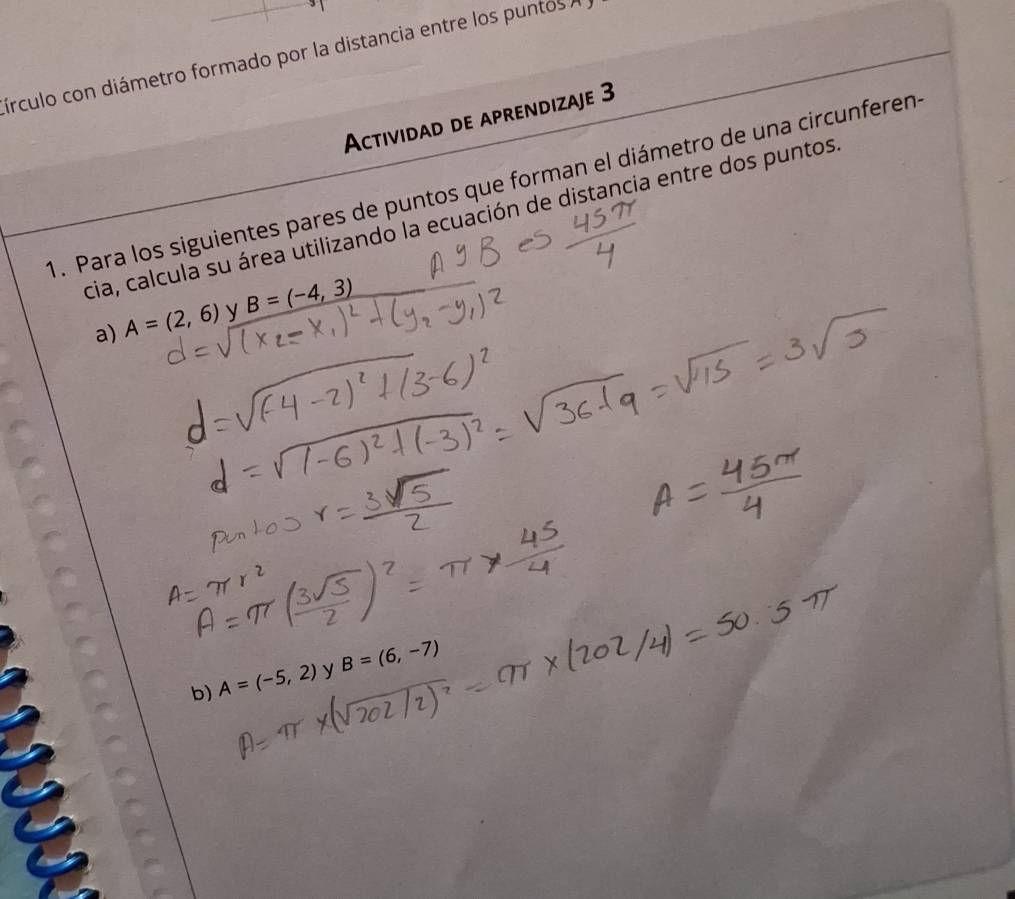 Círculo con diámetro formado por la distancia entre los puntos A y
ACTIVIDAD DE APRENDIZAJE 3
1. Para los siguientes pares de puntos que forman el diámetro de una circunferen-
cia, calcula su área utilizando la ecuación de distancia entre dos puntos.
a) A = (2, 6) y B = (−4, 3) A y B es 45π/4
d = √(x₂ = x₁)² + (y₂ - y₁)²
d = √(-4 - 2)² + (3 - 6)²
d = √(-6)² + (-3)² = √36+9 = √15 = 3√5
puntos r = 3√5/2
A = 45π/4
A = πr²
A = π(3√5/2)² = π × 45/4
b) A = (−5, 2) y B = (6, −7)
A = π × (√202/2)² = π × (202/4) = 50.5π